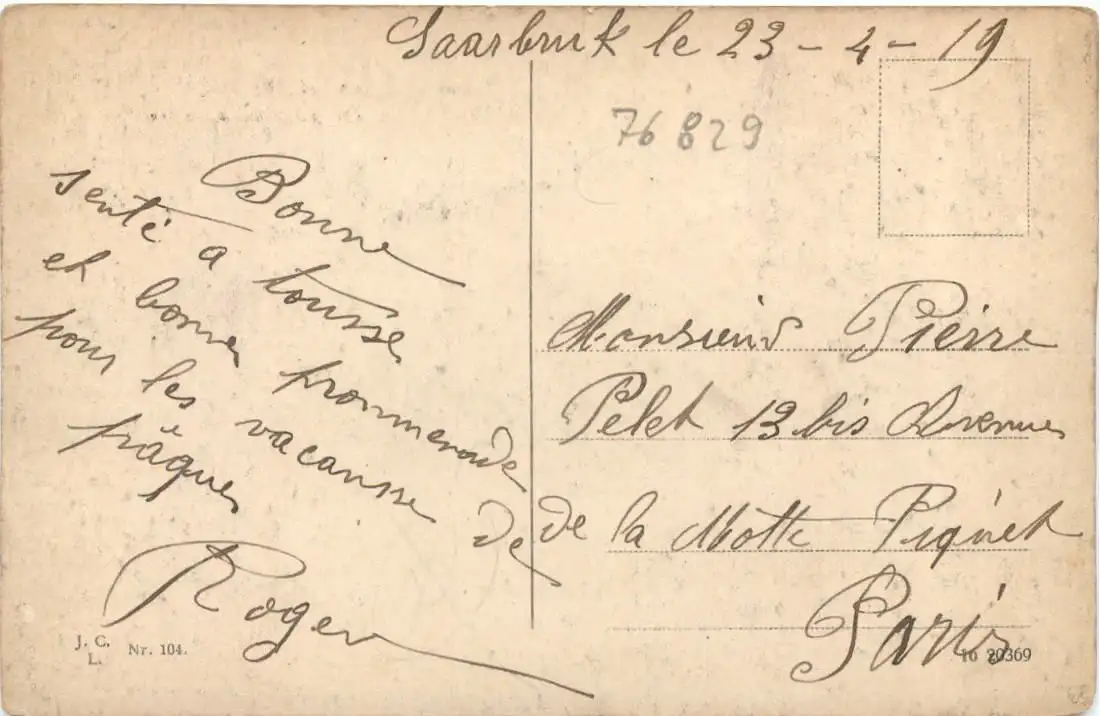 Saarbruk le 23-4-19
76829
Bonne
senté a tousse
et bonne prommenade
pour les vacansse de
pâques
Roger
Monsieur Pierre
Pelet 13 bis Avenue
de la Motte Piquet
Paris
J. C.
L.
Nr. 104.
16 20369